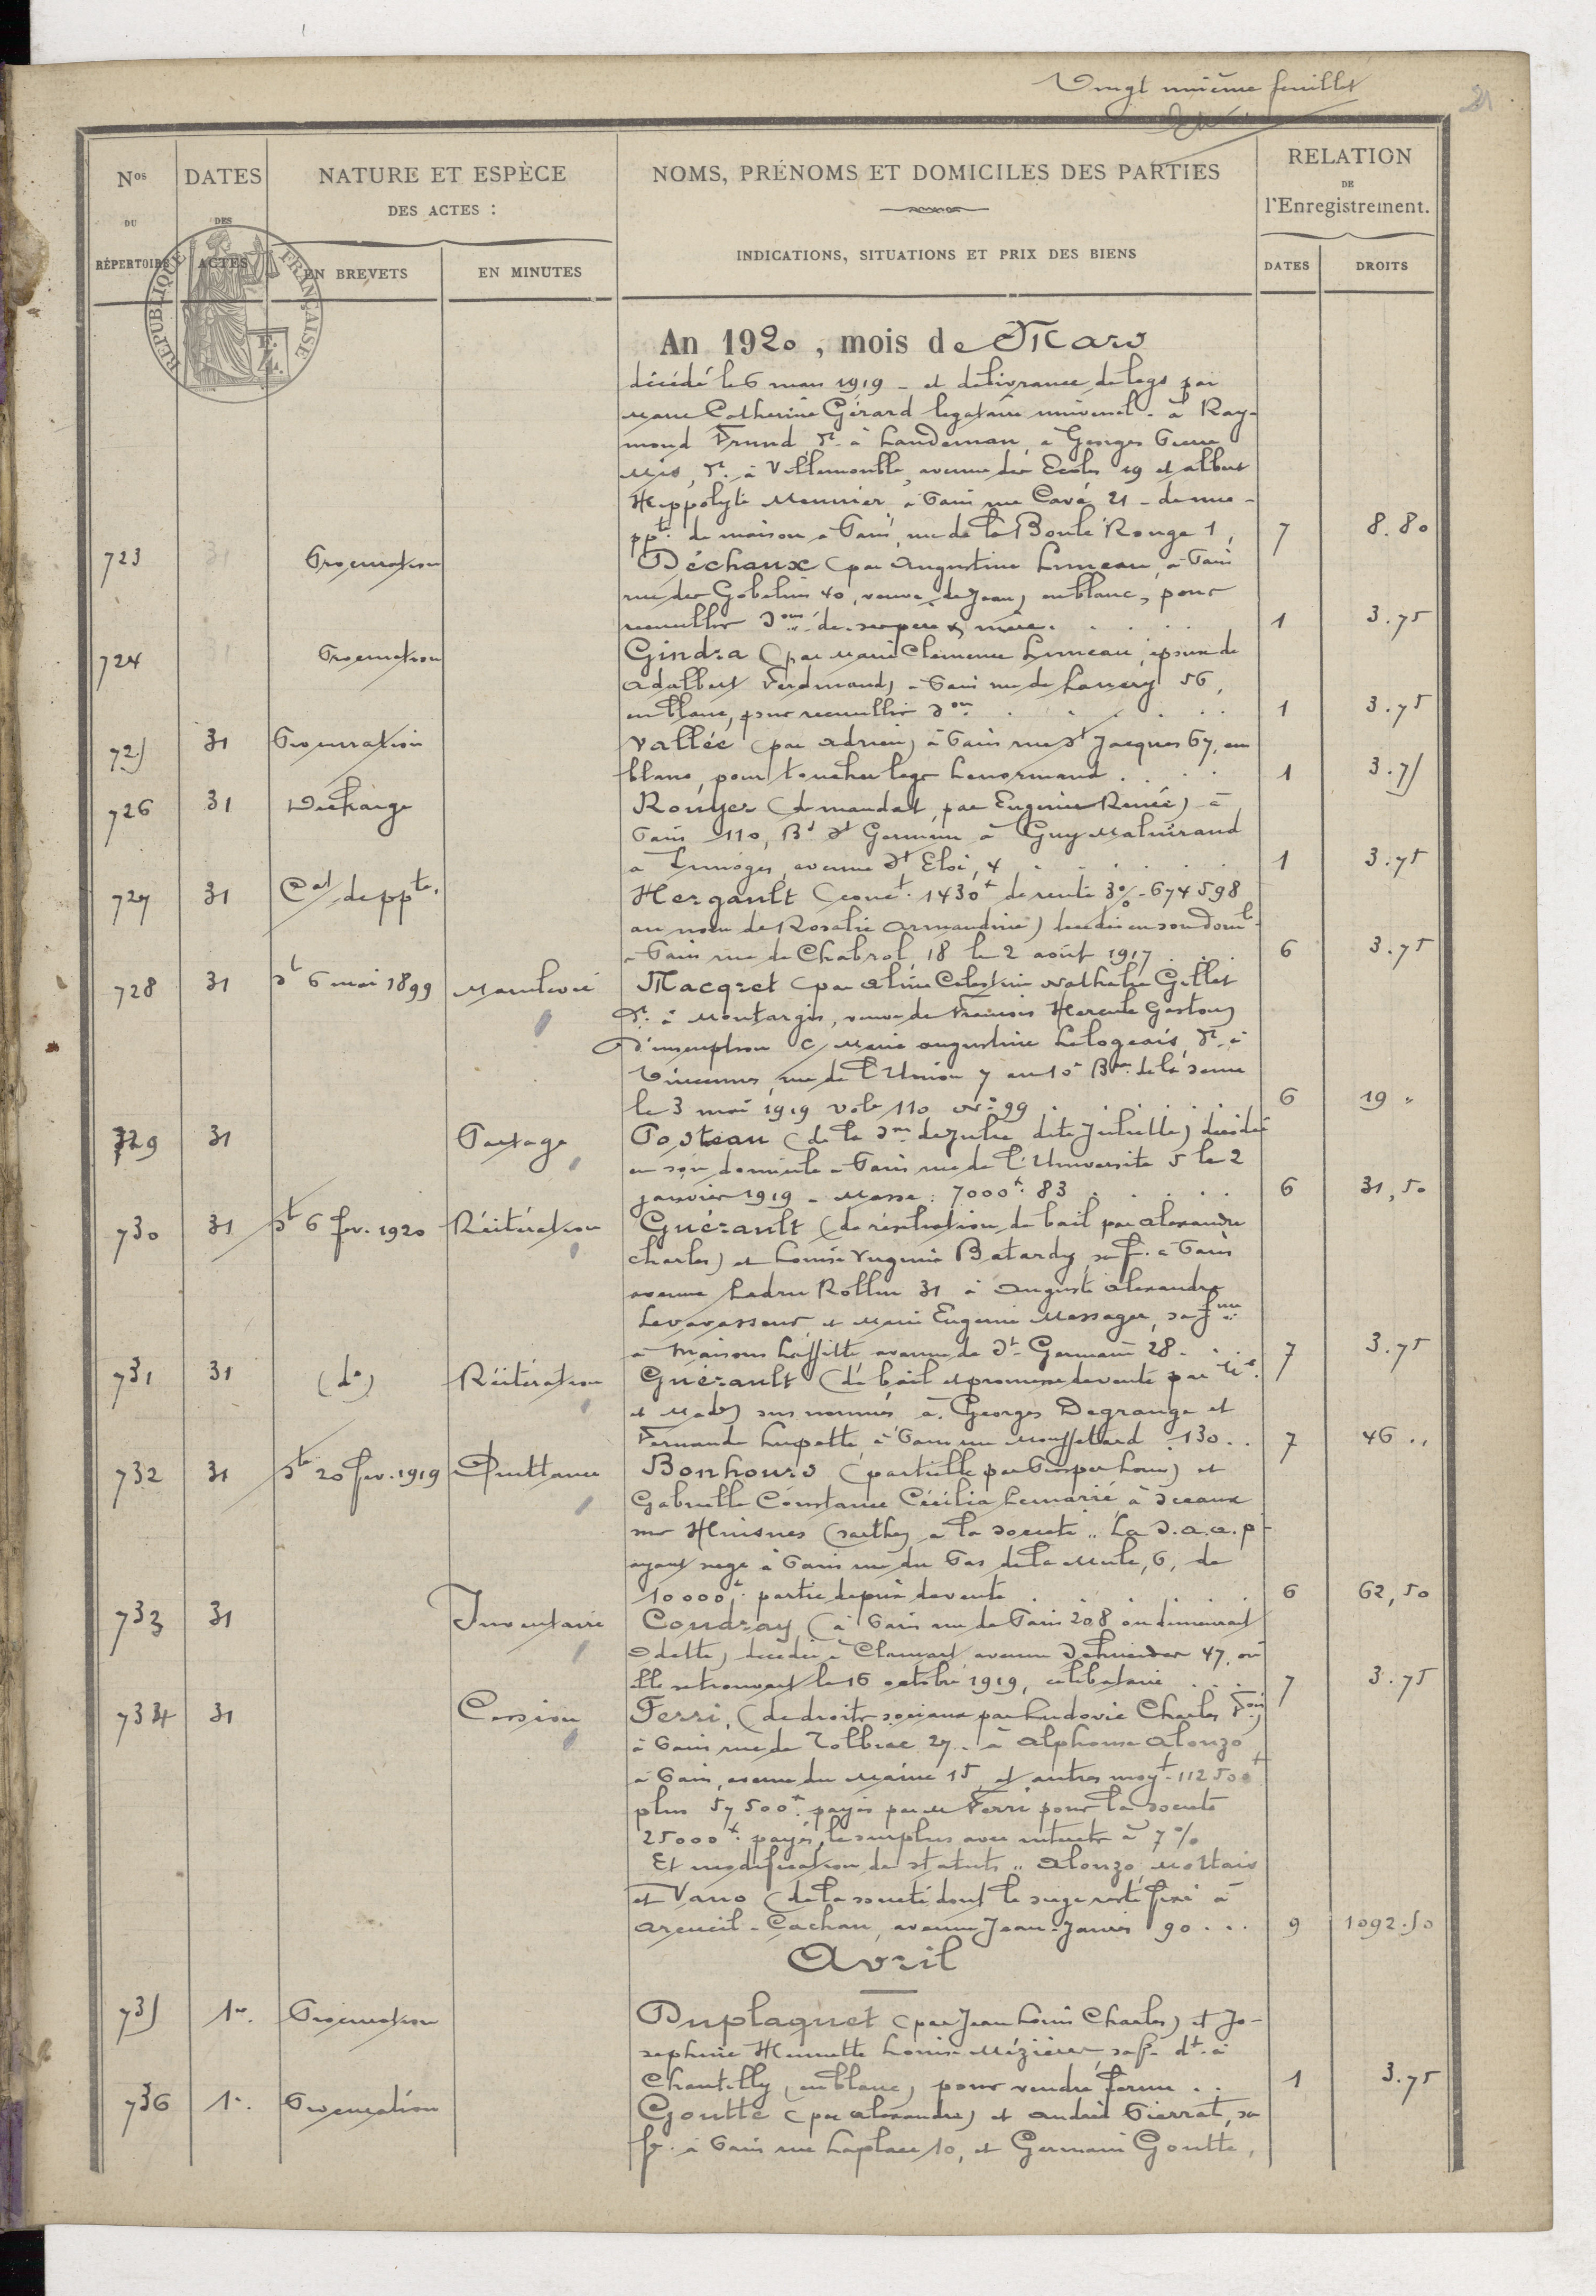 Vingt unième feuillet
21
Nos DU RÉPERTOIRE
DATES DES ACTES
NATURE ET ESPÈCE DES ACTES :
EN BREVETS
EN MINUTES
NOMS, PRÉNOMS ET DOMICILES DES PARTIES
INDICATIONS, SITUATIONS ET PRIX DES BIENS
RELATION DE l'Enregistrement.
DATES
DROITS
RÉPUBLIQUE FRANÇAISE
An 1920, mois de Mars
décédé le 6 mars 1919 - et délivrance de legs par
Marie Catherine Gérard legataire universel - à Ray-
mond Frund dt à Landeman, a Georges Pierre
Mis, dt. à Villemomble, avenue des Ecoles 19 et Albert
Hippolyte Meunier à Paris rue Cavé 21 - de nue-
ppté. de maison a Paris, rue de la Boule Rouge 1, 7 8.80
723 31 Procuration Déchaux (par Augustine Luneau, à Paris
rue des Gobelins 40, veuve de Jean) en blanc, pour
recueillir Son de ses père & mère. 1 3.75
724 31 Procuration Gindra (par Marie Clemence Luneau, épouse de
Adalbert Ferdinand) a Paris rue de Lancry 56,
en blanc, pour recueillir Son 1 3.75
725 31 Procuration Vallée (par Adrien) à Paris rue St Jacques 67, en
blanc, pour toucher legs Lenormand 1 3.75
726 31 Decharge Rouyer (de mandat, par Eugenie Renée) à
Paris 110, Bd St Germain à Guy Malnirand
à Limoges, avenue St Eloi, 4 1 3.75
727 31 Cat de ppté. Hergault (conct. 1430f de rente 3% - 674598
au nom de Rosalie Armandine) décédée en son domle
a Paris rue de Chabrol, 18 le 2 août 1917 6 3.75
728 31 St 6 mai 1899 Mainlevée Macqret (par Aline Celestine Nathalie Gillet
dt. à Montargis, veuve de François Hercule Gaston)
d'inscription c/ Marie Augustine Lelogeais, dt. à
Vincennes, rue de l'Union 7 au 10e Beau de la Seine
le 3 mai 1919 vole 110 No 99 6 19 "
729 31 Partage Posteau (de la Son de Julie dite Juliette) décédée
en son domicile a Paris rue de l'Université 5 le 2
janvier 1919 - Masse : 7000f. 83 6 31,50
730 31 St 6 fev. 1920 Réitération Guérault (de résiliation de bail par Alexandre
Charles) et Louise Virginie Batardy, sa f. à Paris
avenue Ledru Rollin 31 à Auguste Alexandre
Levavasseur, et Marie Eugenie Messager, sa fme
à Maisons Laffitte avenue de St Germain 28. 7 3.75
731 31 (do) Réitération Guérault (de bail et promesse de vente par Mr.
et Made) sus nommés à Georges Degrange et
Fernande Lupette, à Paris rue Mouffetard 130 7 46 "
732 31 St 20 fev. 1919 Quittance Bonhours (partielle par Prosper Louis) et
Gabrielle Constance Cécilia Lemarié à Sceaux
sur Huisnes (Sarthe) a la société "La S.a.a.p
ayant siege à Paris rue du Pas de la Mule, 6, de
10000f. partie de prix de vente 6 62,50
733 31 Inventaire Coudray (à Paris rue de Paris 208 ou demeurait
Odette) décédée à Clamart avenue Schneider 47, où
elle se trouvait le 16 octobre 1919, célibataire 7 3.75
734 31 Cession Ferri, (de droits sociaux par Ludovic Charles Fois)
à Paris rue de Tolbiac 27. à Alphonse Alonzo
à Paris, avenue du Maine 15, et autres moyt 112500f
plus 57500f. payés par M Ferri pour la societe
25000f. payés, le surplus avec intérêts à 7%
Et modification de statuts "Alonzo, Mottais
et Vano (de la société dont le siege reste fixé à
Arcueil-Cachan, avenue Jean-Jaurès 90 9 1092.50
Avril
735 1er. Procuration Duplaquet (par Jean Louis Charles) et Jo-
sephine Henriette Louise Mézières, sa f. dt. à
Chantilly (en blanc) pour vendre ferme 1 3.75
736 1er. Procuration Goutte (par Alexandre) et Andrée Pierrat, sa
f. à Paris rue Laplace 10, et Germain Goutte,